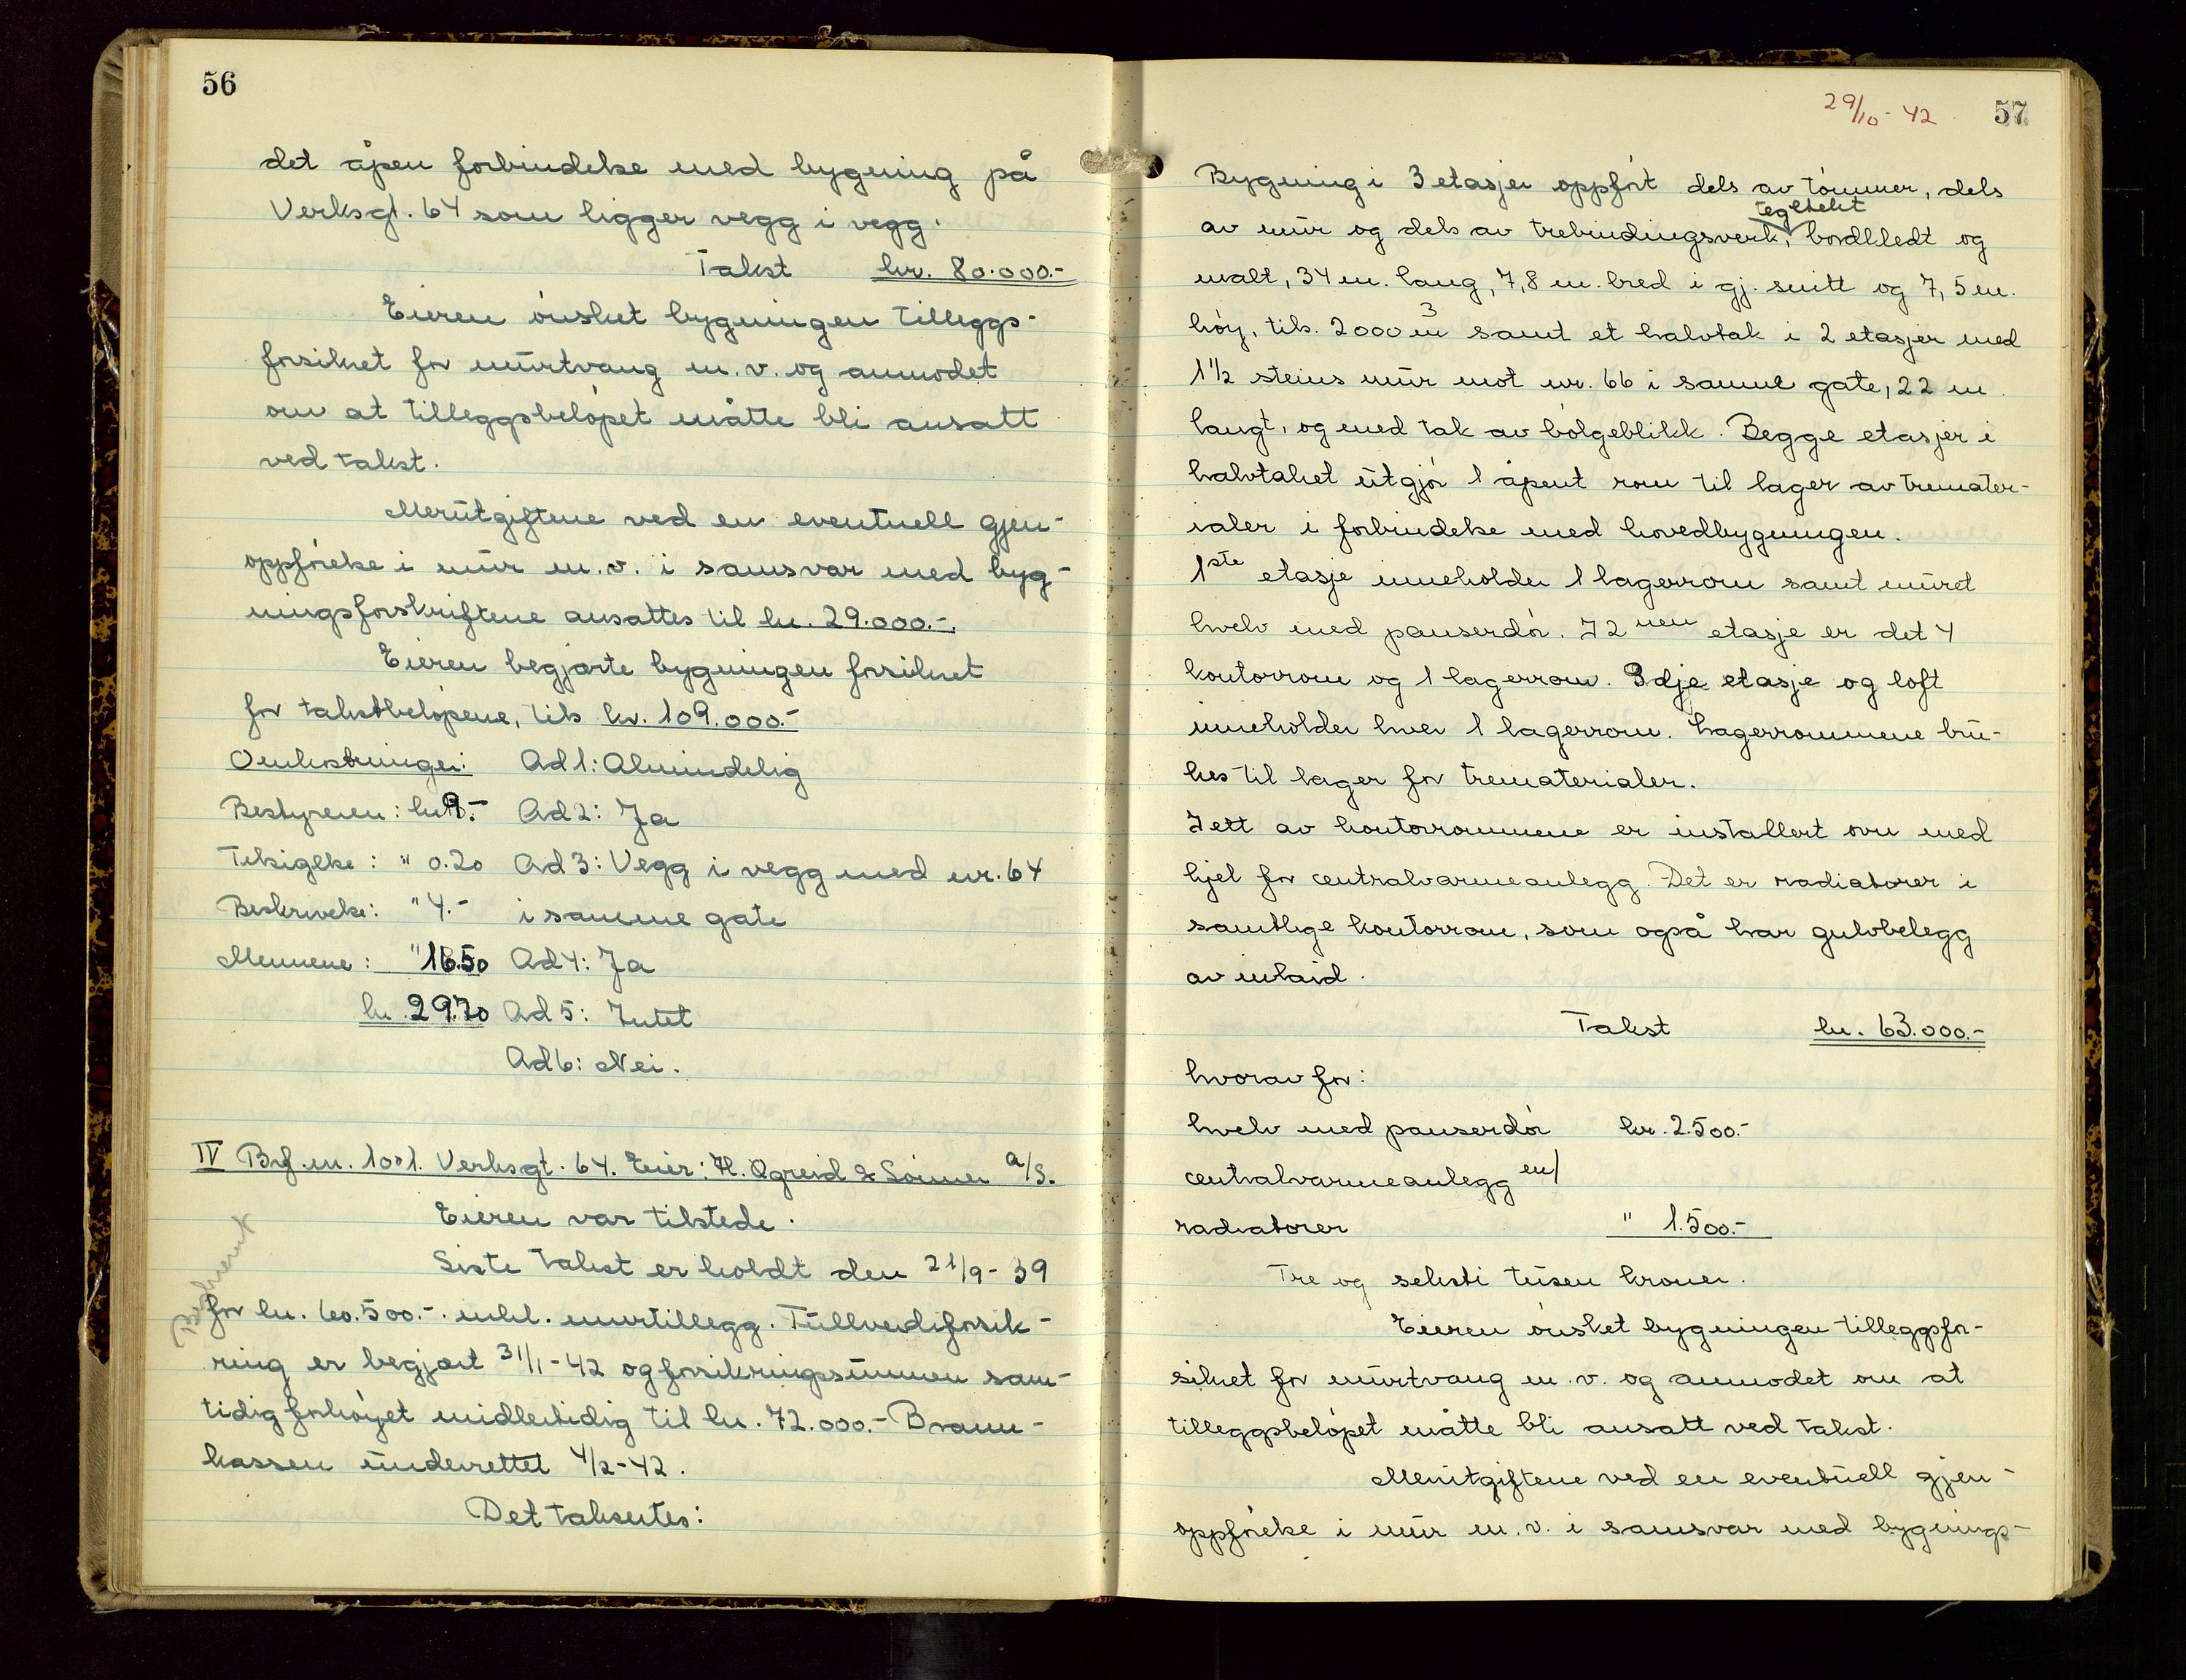 56
det åpen forbindelse med bygning på
Verksgt. 64 som ligger vegg i vegg.
Takst kr. 80.000.-
Eieren ønsket bygningen tilleggs-
forsikret for murtvang m.v. og anmodet
om at tilleggsbeløpet måtte bli ansatt
ved takst.
Merutgiftene ved en eventuell gjen-
oppførelse i mur m.v. i samsvar med byg-
ningsforskriftene ansattes til kr. 29.000.-.
Eieren begjærte bygningen forsikret
for takstbeløpene, tils. kr. 109.000.-
Omkostninger: Ad 1: Almindelig
Bestyreren: kr 9.- Ad 2: Ja
Tilsigelse: " 0.20 Ad 3: Vegg i vegg med nr. 64
Beskrivelse: " 4.- i samme gate
Mennene: " 16.50 Ad 4: Ja
kr. 29.70 Ad 5: Intet
Ad 6: Nei.
IV Brf. m. 1001. Verksgt. 64. Eier: H. Øgreid & Sønner A/S.
Eieren var tilstede.
Siste takst er holdt den 21/9-39
for kr. 60.500.-. inkl. murtillegg. Fullverdiforsik-
ring er begjært 31/1-42 og forsikringssummen sam-
tidig forhøyet midlertidig til kr. 72.000.- Brann-
kassen underrettet 4/2-42.
Det takseres:
29/10-42 57
Bygning i 3 etasjer oppført dels av tømmer, dels
tegltekt
av mur og dels av trebindingsverk, bordkledt og
malt, 34 m. lang, 7,8 m. bred i gj. snitt og 7,5 m.
høy, tils. 2000 m³ samt et halvtak i 2 etasjer med
1½ steins mur mot nr. 66 i samme gate, 22 m.
langt, og med tak av bølgeblikk. Begge etasjer i
halvtaket utgjør 1 åpent rom til lager av tremater-
ialer i forbindelse med hovedbygningen.
1ste etasje inneholder 1 lagerrom samt muret
hvelv med panserdør. I 2nen etasje er det 4
kontorrom og 1 lagerrom. 3dje etasje og loft
inneholder hver 1 lagerrom. Lagerrommene bru-
kes til lager for trematerialer.
I ett av kontorrommene er installert ovn med
kjel for centralvarmeanlegg. Det er radiatorer i
samtlige kontorrom, som også har gulvbelegg
av inlaid.
Takst kr. 63.000.-
hvorav for:
hvelv med panserdør kr. 2.500.-
centralvarmeanlegg m/
radiatorer " 1.500.-
Tre og seksti tusen kroner.
Eieren ønsket bygningen tilleggsfor-
sikret for murtvang m.v. og anmodet om at
tilleggsbeløpet måtte bli ansatt ved takst.
Merutgiftene ved en eventuell gjen-
oppførelse i mur m.v. i samsvar med bygnings-